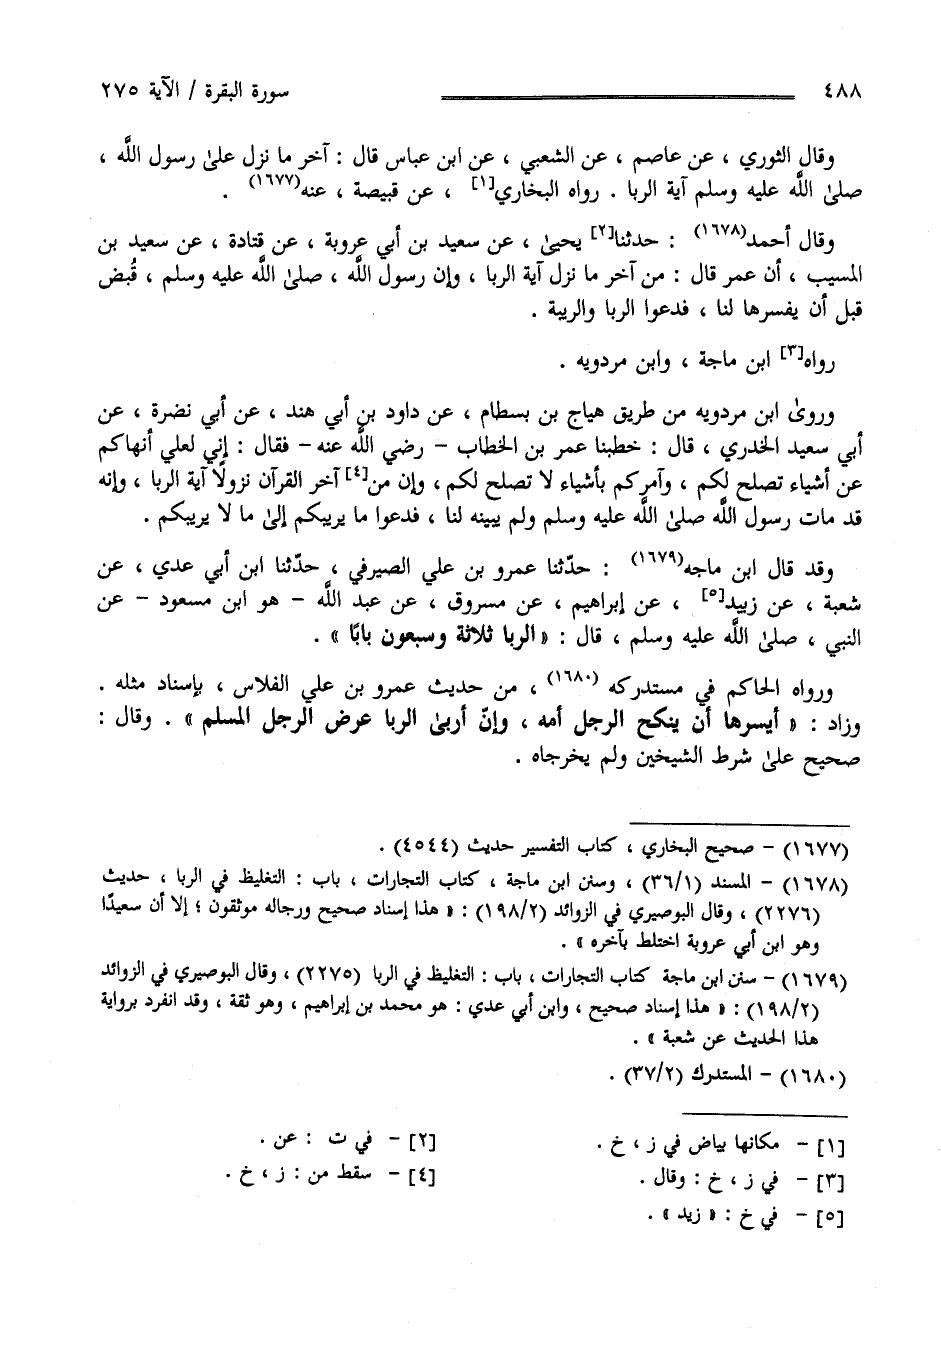 ٤٨٨ سورة البقرة / الآية ٢٧٥
وقال الثوري ، عن عاصم ، عن الشعبي ، عن ابن عباس قال : آخر ما نزل علىٰ رسول اللَّه ،
صلىٰ اللَّه عليه وسلم آية الربا . رواه البخاري[١] ، عن قبيصة ، عنه(١٦٧٧) .
وقال أحمد(١٦٧٨) : حدثنا[٢] يحيىٰ ، عن سعيد بن أبي عروبة ، عن قتادة ، عن سعيد بن
المسيب ، أن عمر قال : من آخر ما نزل آية الربا ، وإن رسول اللَّه ، صلىٰ اللَّه عليه وسلم ، قُبض
قبل أن يفسرها لنا ، فدعوا الربا والريبة .
رواه[٣] ابن ماجة ، وابن مردويه .
وروىٰ ابن مردويه من طريق هياج بن بسطام ، عن داود بن أبي هند ، عن أبي نضرة ، عن
أبي سعيد الخدري ، قال : خطبنا عمر بن الخطاب – رضي اللَّه عنه – فقال : إني لعلي أنهاكم
عن أشياء تصلح لكم ، وآمركم بأشياء لا تصلح لكم ، وإن من[٤] آخر القرآن نزولًا آية الربا ، وإنه
قد مات رسول اللَّه صلىٰ اللَّه عليه وسلم ولم يبينه لنا ، فدعوا ما يريبكم إلىٰ ما لا يريبكم .
وقد قال ابن ماجه(١٦٧٩) : حدّثنا عمرو بن علي الصيرفي ، حدّثنا ابن أبي عدي ، عن
شعبة ، عن زبيد[٥] ، عن إبراهيم ، عن مسروق ، عن عبد اللَّه – هو ابن مسعود – عن
النبي ، صلىٰ اللَّه عليه وسلم ، قال : « الربا ثلاثة وسبعون بابًا » .
ورواه الحاكم في مستدركه (١٦٨٠) ، من حديث عمرو بن علي الفلاس ، بإسناد مثله .
وزاد : « أيسرها أن ينكح الرجل أمه ، وإنّ أربىٰ الربا عرض الرجل المسلم » . وقال :
صحيح علىٰ شرط الشيخين ولم يخرجاه .
(١٦٧٧) – صحيح البخاري ، كتاب التفسير حديث (٤٥٤٤) .
(١٦٧٨) – المسند (٣٦/١) ، وسنن ابن ماجة ، كتاب التجارات ، باب : التغليظ في الربا ، حديث
(٢٢٧٦) ، وقال البوصيري في الزوائد (١٩٨/٢) : « هذا إسناد صحيح ورجاله موثقون ؛ إلا أن سعيدًا
وهو ابن أبي عروبة اختلط بآخره » .
(١٦٧٩) – سنن ابن ماجة كتاب التجارات ، باب : التغليظ في الربا (٢٢٧٥) ، وقال البوصيري في الزوائد
(١٩٨/٢) : « هذا إسناد صحيح ، وابن أبي عدي : هو محمد بن إبراهيم ، وهو ثقة ، وقد انفرد برواية
هذا الحديث عن شعبة » .
(١٦٨٠) – المستدرك (٣٧/٢) .
[١] – مكانها بياض في ز ، خ . [٢] – في ت : عن .
[٣] – في ز ، خ : وقال . [٤] – سقط من : ز ، خ .
[٥] – في خ : « زيد » .